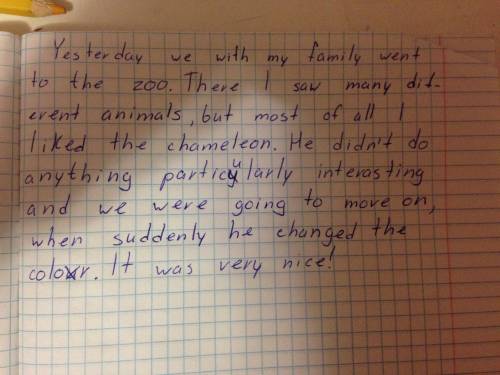 Yesterday we with my family went
to the zoo. There I saw many dif-
erent animals, but most of all I
liked the chameleon. He didn't do
anything particularly interasting
and we were going to move on,
when suddenly he changed the
color. It was very nice!